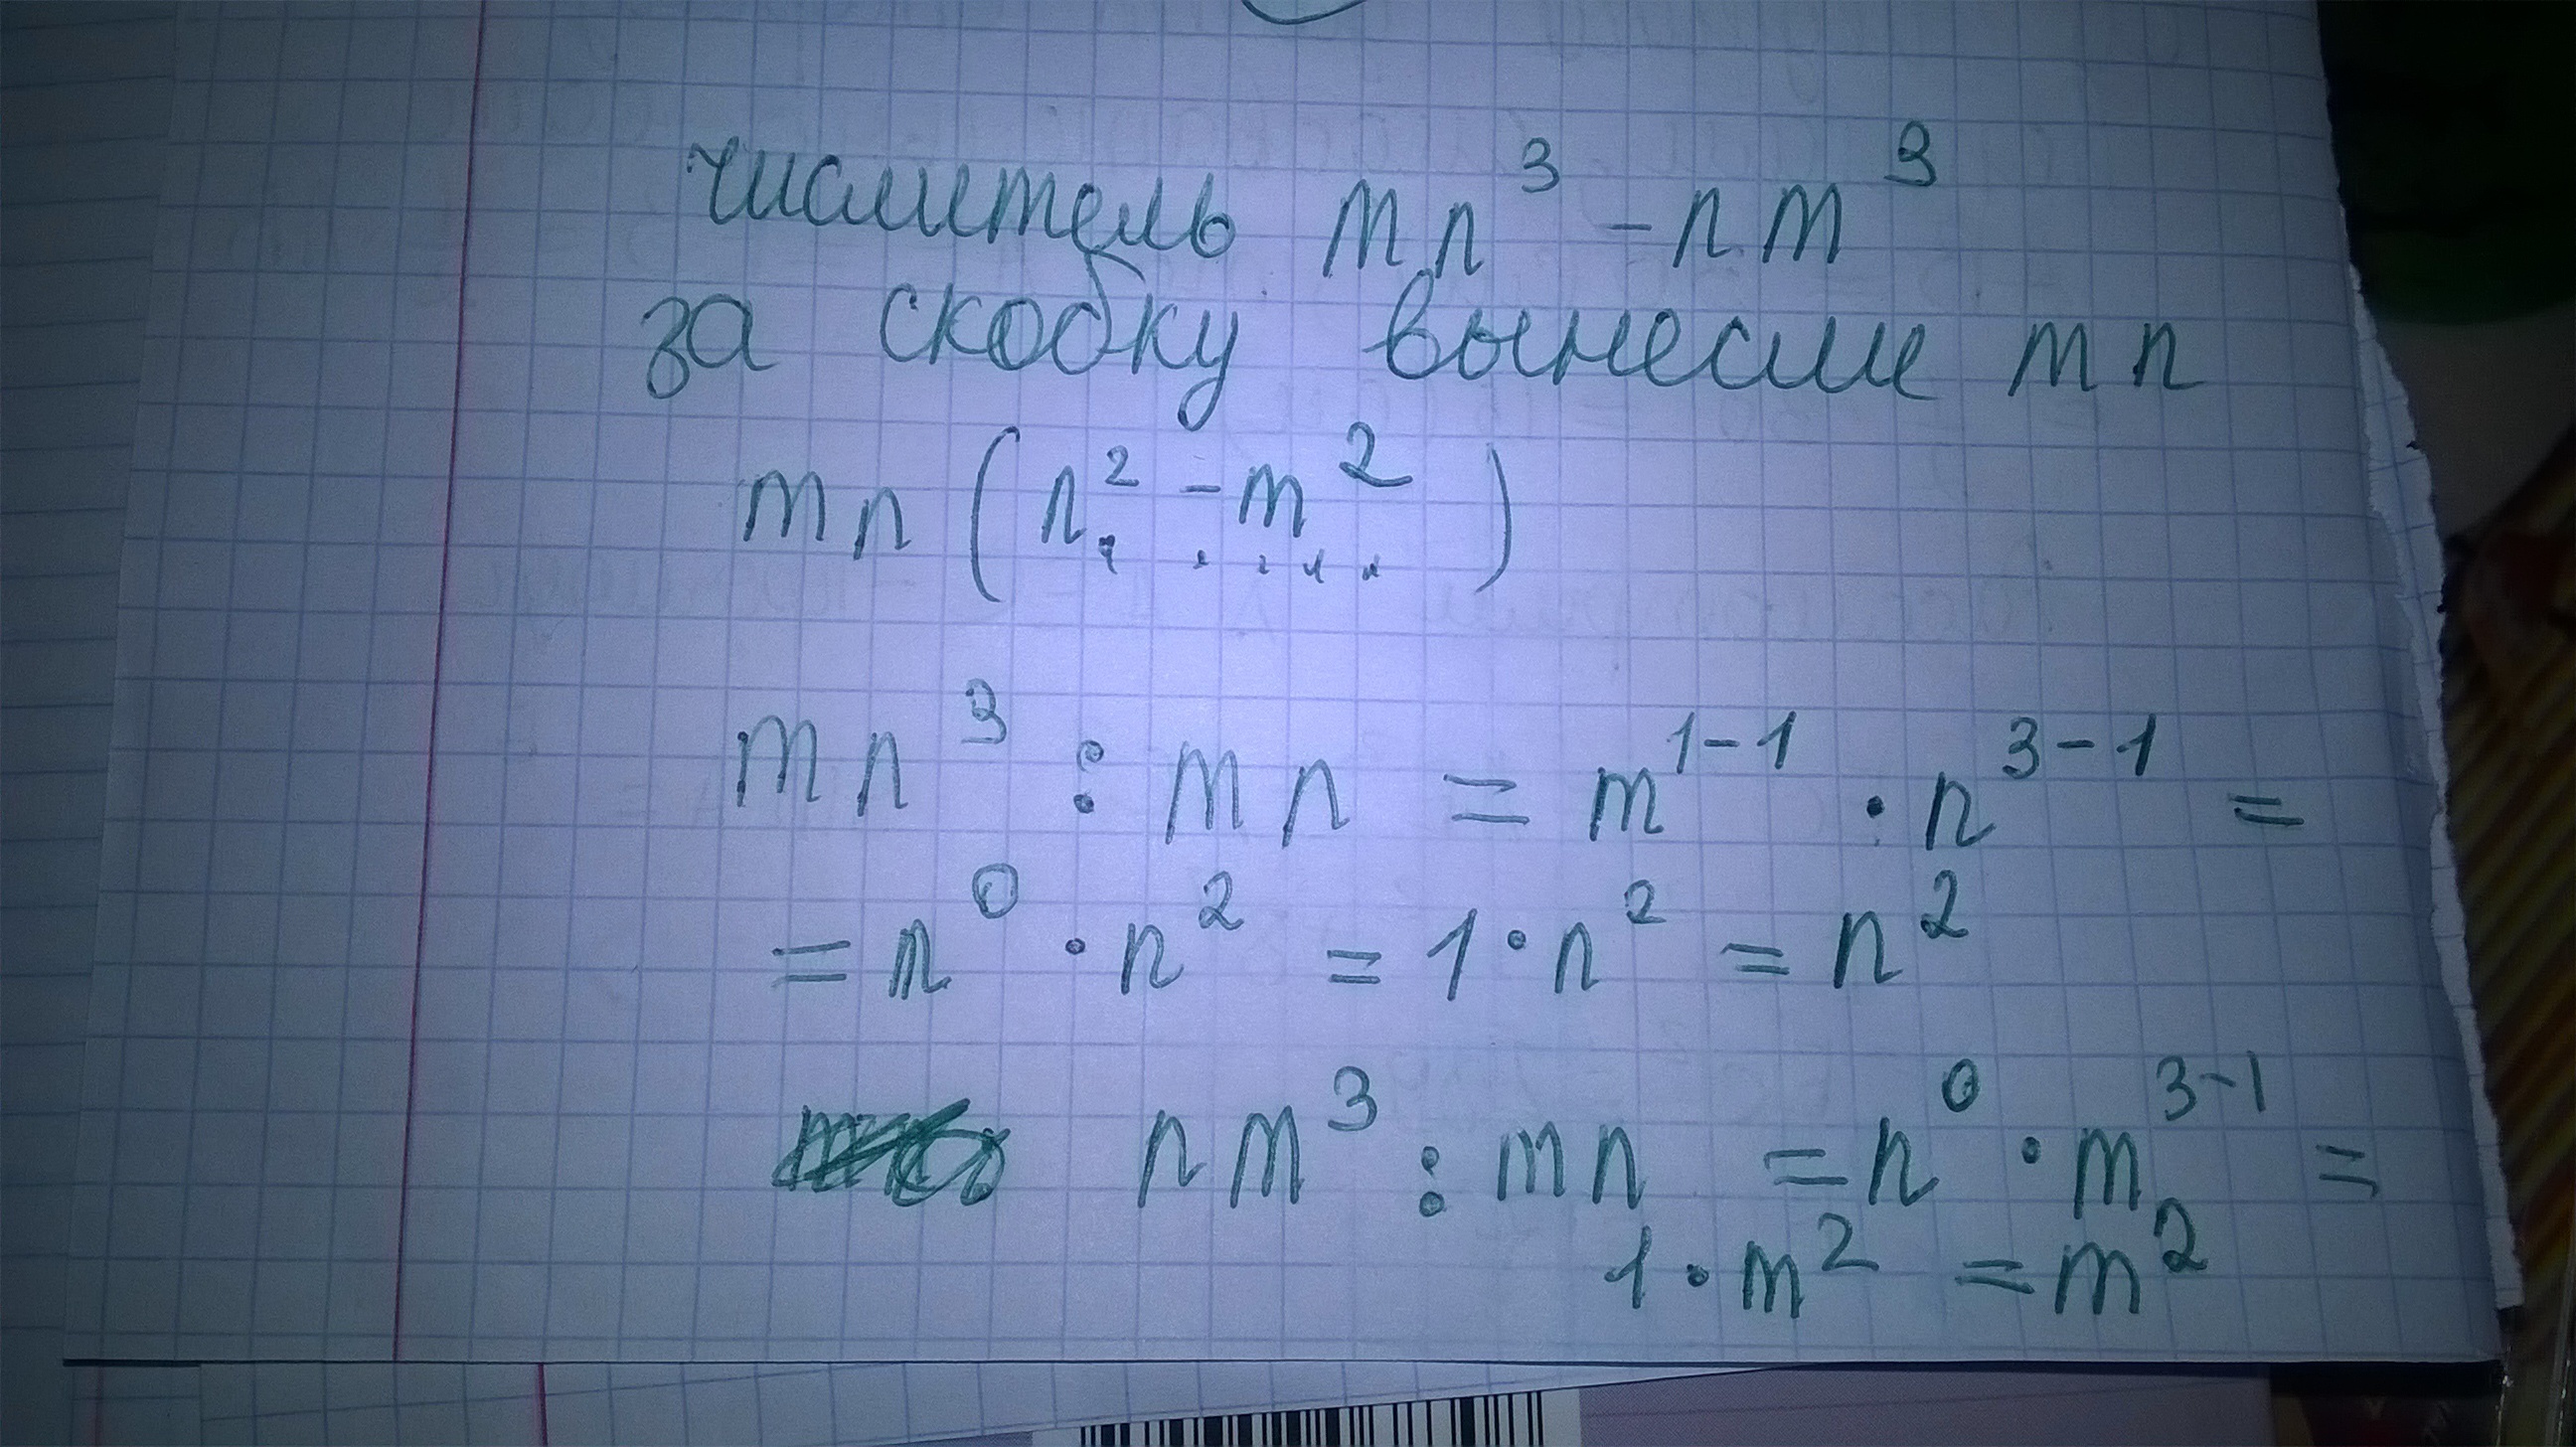 числитель mn³ - nm³
за скобку вынесли mn
mn (n² - m²)
mn³ : mn = m¹⁻¹ · n³⁻¹ =
= n⁰ · n² = 1 · n² = n²
nm³ : mn = n⁰ · m³⁻¹ =
1 · m² = m²